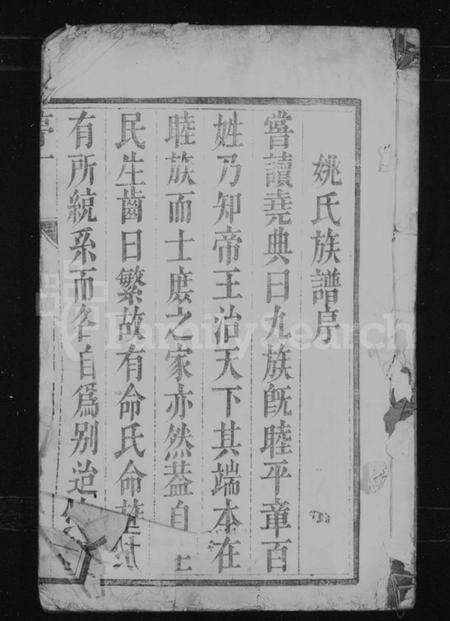 姚氏族譜序
嘗讀堯典曰九族既睦平章百
姓乃知帝王治天下其端本在
睦族而士庶之家亦然蓋自上
民生齒日繁故有命氏命族
有所統系而各自為別迨
序一
FamilySearch